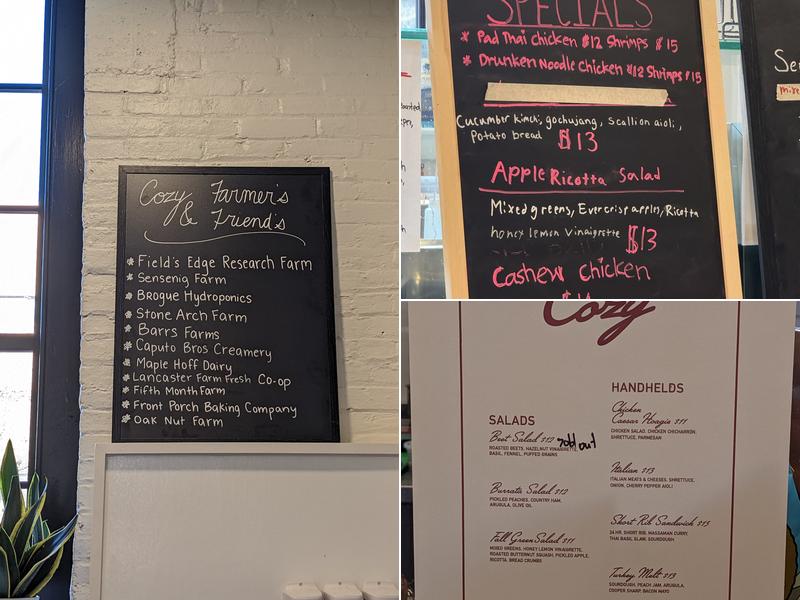 Cozy Farmer's
& Friend's
* Field's Edge Research Farm
* Sensenig Farm
* Brogue Hydroponics
* Stone Arch Farm
* Barrs Farms
* Caputo Bros Creamery
* Maple Hoff Dairy
* Lancaster Farm Fresh Co-op
* Fifth Month Farm
* Front Porch Baking Company
* Oak Nut Farm
SPECIALS
* Pad Thai Chicken $12 Shrimps $15
* Drunken Noodle Chicken $12 Shrimps $15
Cucumber kimchi, gochujang, scallion aioli,
Potato bread $13
Apple Ricotta Salad
Mixed greens, Evercrisp apples, Ricotta
honey lemon vinaigrette $13
Cashew chicken
Cozy
SALADS
Beet Salad $12 sold out
ROASTED BEETS, HAZELNUT VINAIGRETTE,
BASIL, FENNEL, PUFFED GRAINS
Burrata Salad $12
PICKLED PEACHES, COUNTRY HAM,
ARUGULA, OLIVE OIL
Fall Green Salad $11
MIXED GREENS, HONEY LEMON VINAIGRETTE,
ROASTED BUTTERNUT SQUASH, PICKLED APPLE,
RICOTTA, BREAD CRUMBS
HANDHELDS
Chicken
Caesar Hoagie $11
CHICKEN SALAD, CHICKEN CHICHARRÓN,
SHRETTUCE, PARMESAN
Italian $13
ITALIAN MEATS & CHEESES, SHRETTUCE,
ONION, CHERRY PEPPER AIOLI
Short Rib Sandwich $15
24 HR. SHORT RIB, MASSAMAN CURRY,
THAI BASIL SLAW, SOURDOUGH
Turkey Melt $13
SOURDOUGH, PEACH JAM, ARUGULA,
COOPER SHARP, BACON MAYO